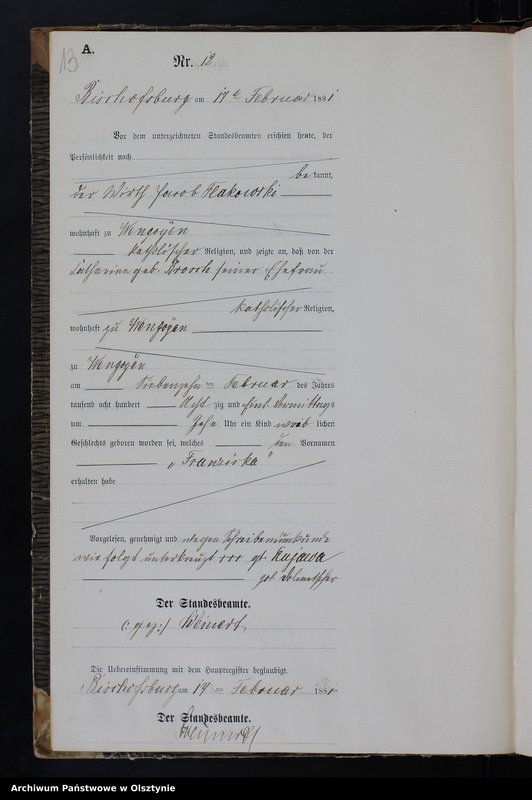 13
A.
Nr. 12
Bischofsburg am ten Februar 1881
Vor dem unterzeichneten Standesbeamten erschien heute, der
Persönlichkeit nach
be kannt,
der Wirth Jacob Flakowski
wohnhaft zu Wengoyen
katholischer Religion, und zeigte an, daß von der
Catharine geb. seiner Ehefrau
katholischer Religion,
wohnhaft zu Wengoyen
zu Wengoyen
am Siebenzehn ten Februar des Jahres
tausend acht hundert Acht zig und Eins Vormittags
um Zehn Uhr ein Kind weib lichen
Geschlechts geboren worden sei, welches den Vornamen
„Franziska“
erhalten habe
Vorgelesen, genehmigt und wegen Schreibensunkunde
wie folgt unterkreuzt +++ gt. Kujawa
Dolmetscher
Der Standesbeamte.
(:gez:) Weinert
Die Uebereinstimmung mit dem Hauptregister beglaubigt.
Bischofsburg am ten Februar 1881
Der Standesbeamte.
Weinert
Archiwum Państwowe w Olsztynie